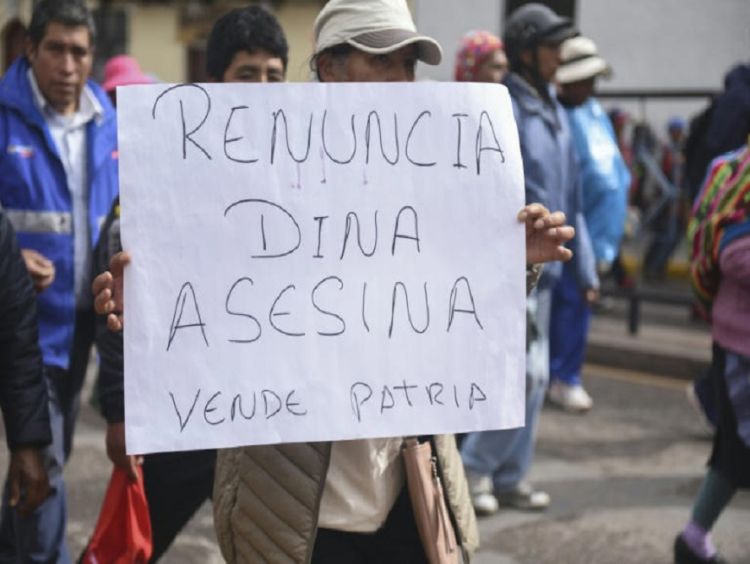 RENUNCIA
DINA
ASESINA
VENDE PATRIA